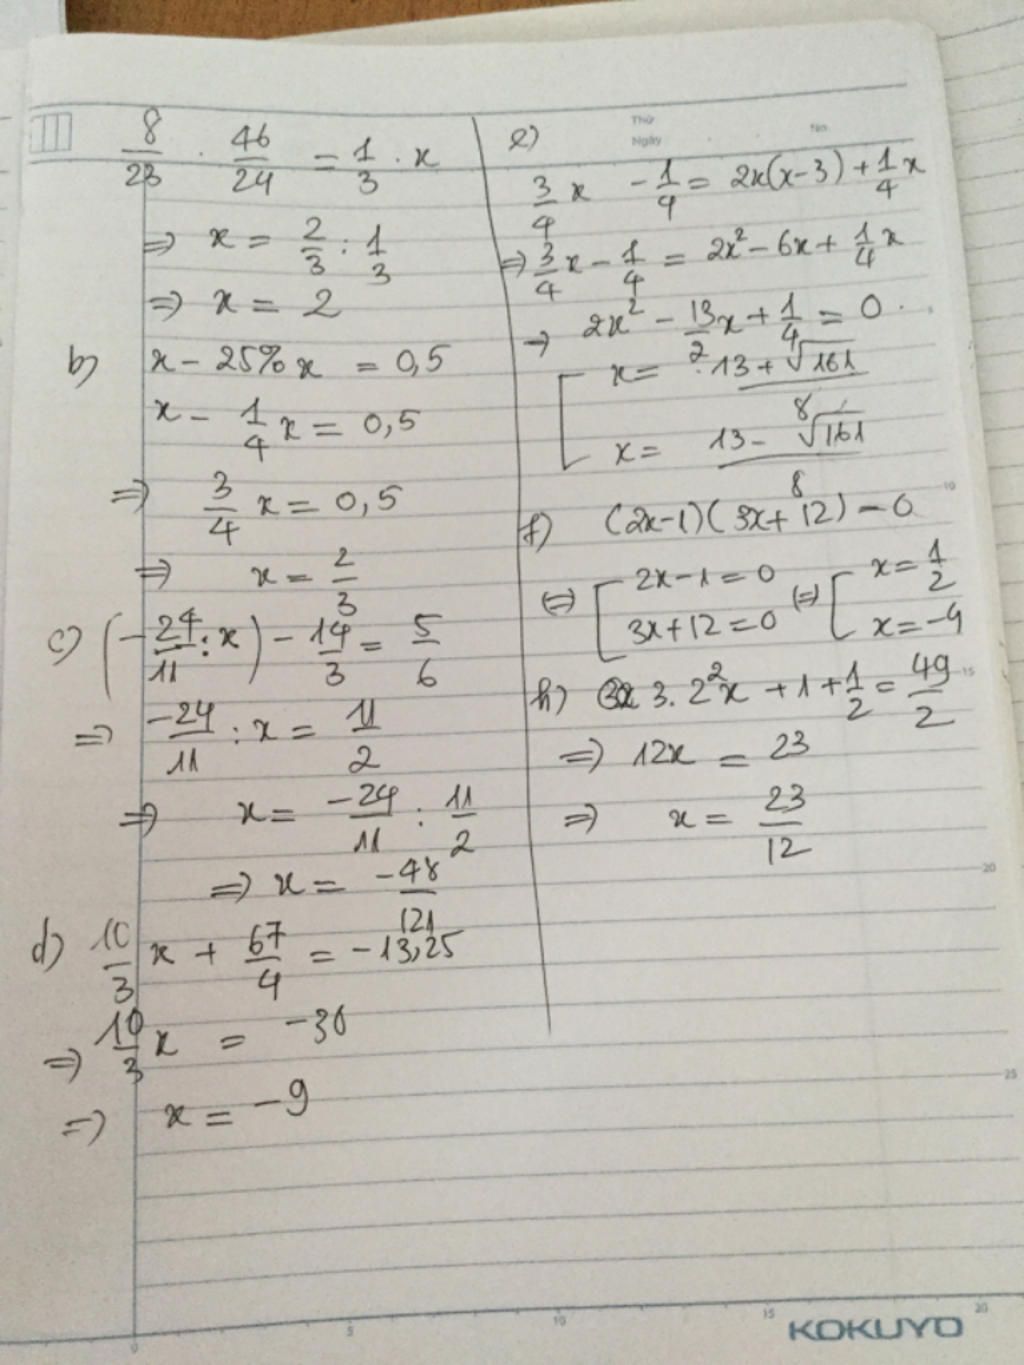 8/23 . 46/24 = 1/3 . x
=> x = 2/3 : 1/3
=> x = 2
b) x - 25% x = 0,5
x - 1/4 x = 0,5
=> 3/4 x = 0,5
=> x = 2/3
c) (-24/11 : x) - 14/3 = 5/6
=> -24/11 : x = 11/2
=> x = -24/11 : 11/2
=> x = -48/121
d) 10/3 x + 67/4 = -13,25
=> 10/3 x = -30
=> x = -9
Thứ
Ngày
No.
e)
3/4 x - 1/4 = 2x(x-3) + 1/4 x
=> 3/4 x - 1/4 = 2x² - 6x + 1/4 x
→ 2x² - 13/2 x + 1/4 = 0.
[ x = 13 + √161 / 8
x = 13 - √161 / 8
f) (2x-1)(3x+12) = 0
<=> [ 2x-1 = 0 <=> [ x = 1/2
3x+12 = 0 x = -4
h) 3. 2² x + 1 + 1/2 = 49/2
=> 12x = 23
=> x = 23/12
5
10
15
20
25
0
5
10
15
20
KOKUYO